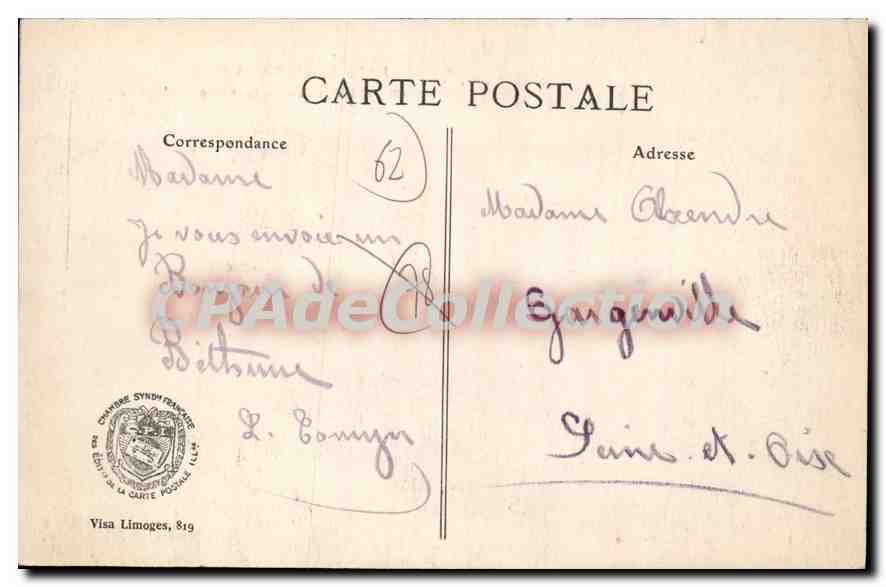 CARTE POSTALE
Correspondance
62
Adresse
Madame
Je vous envoie un
Bonjour de
Béthune
78
Madame
Gargenville
Seine-et-Oise
CPAdeCollection
CHAMBRE SYNDle FRANÇAISE
DES ÉDITrs DE LA CARTE POSTALE ILLée
Visa Limoges, 819